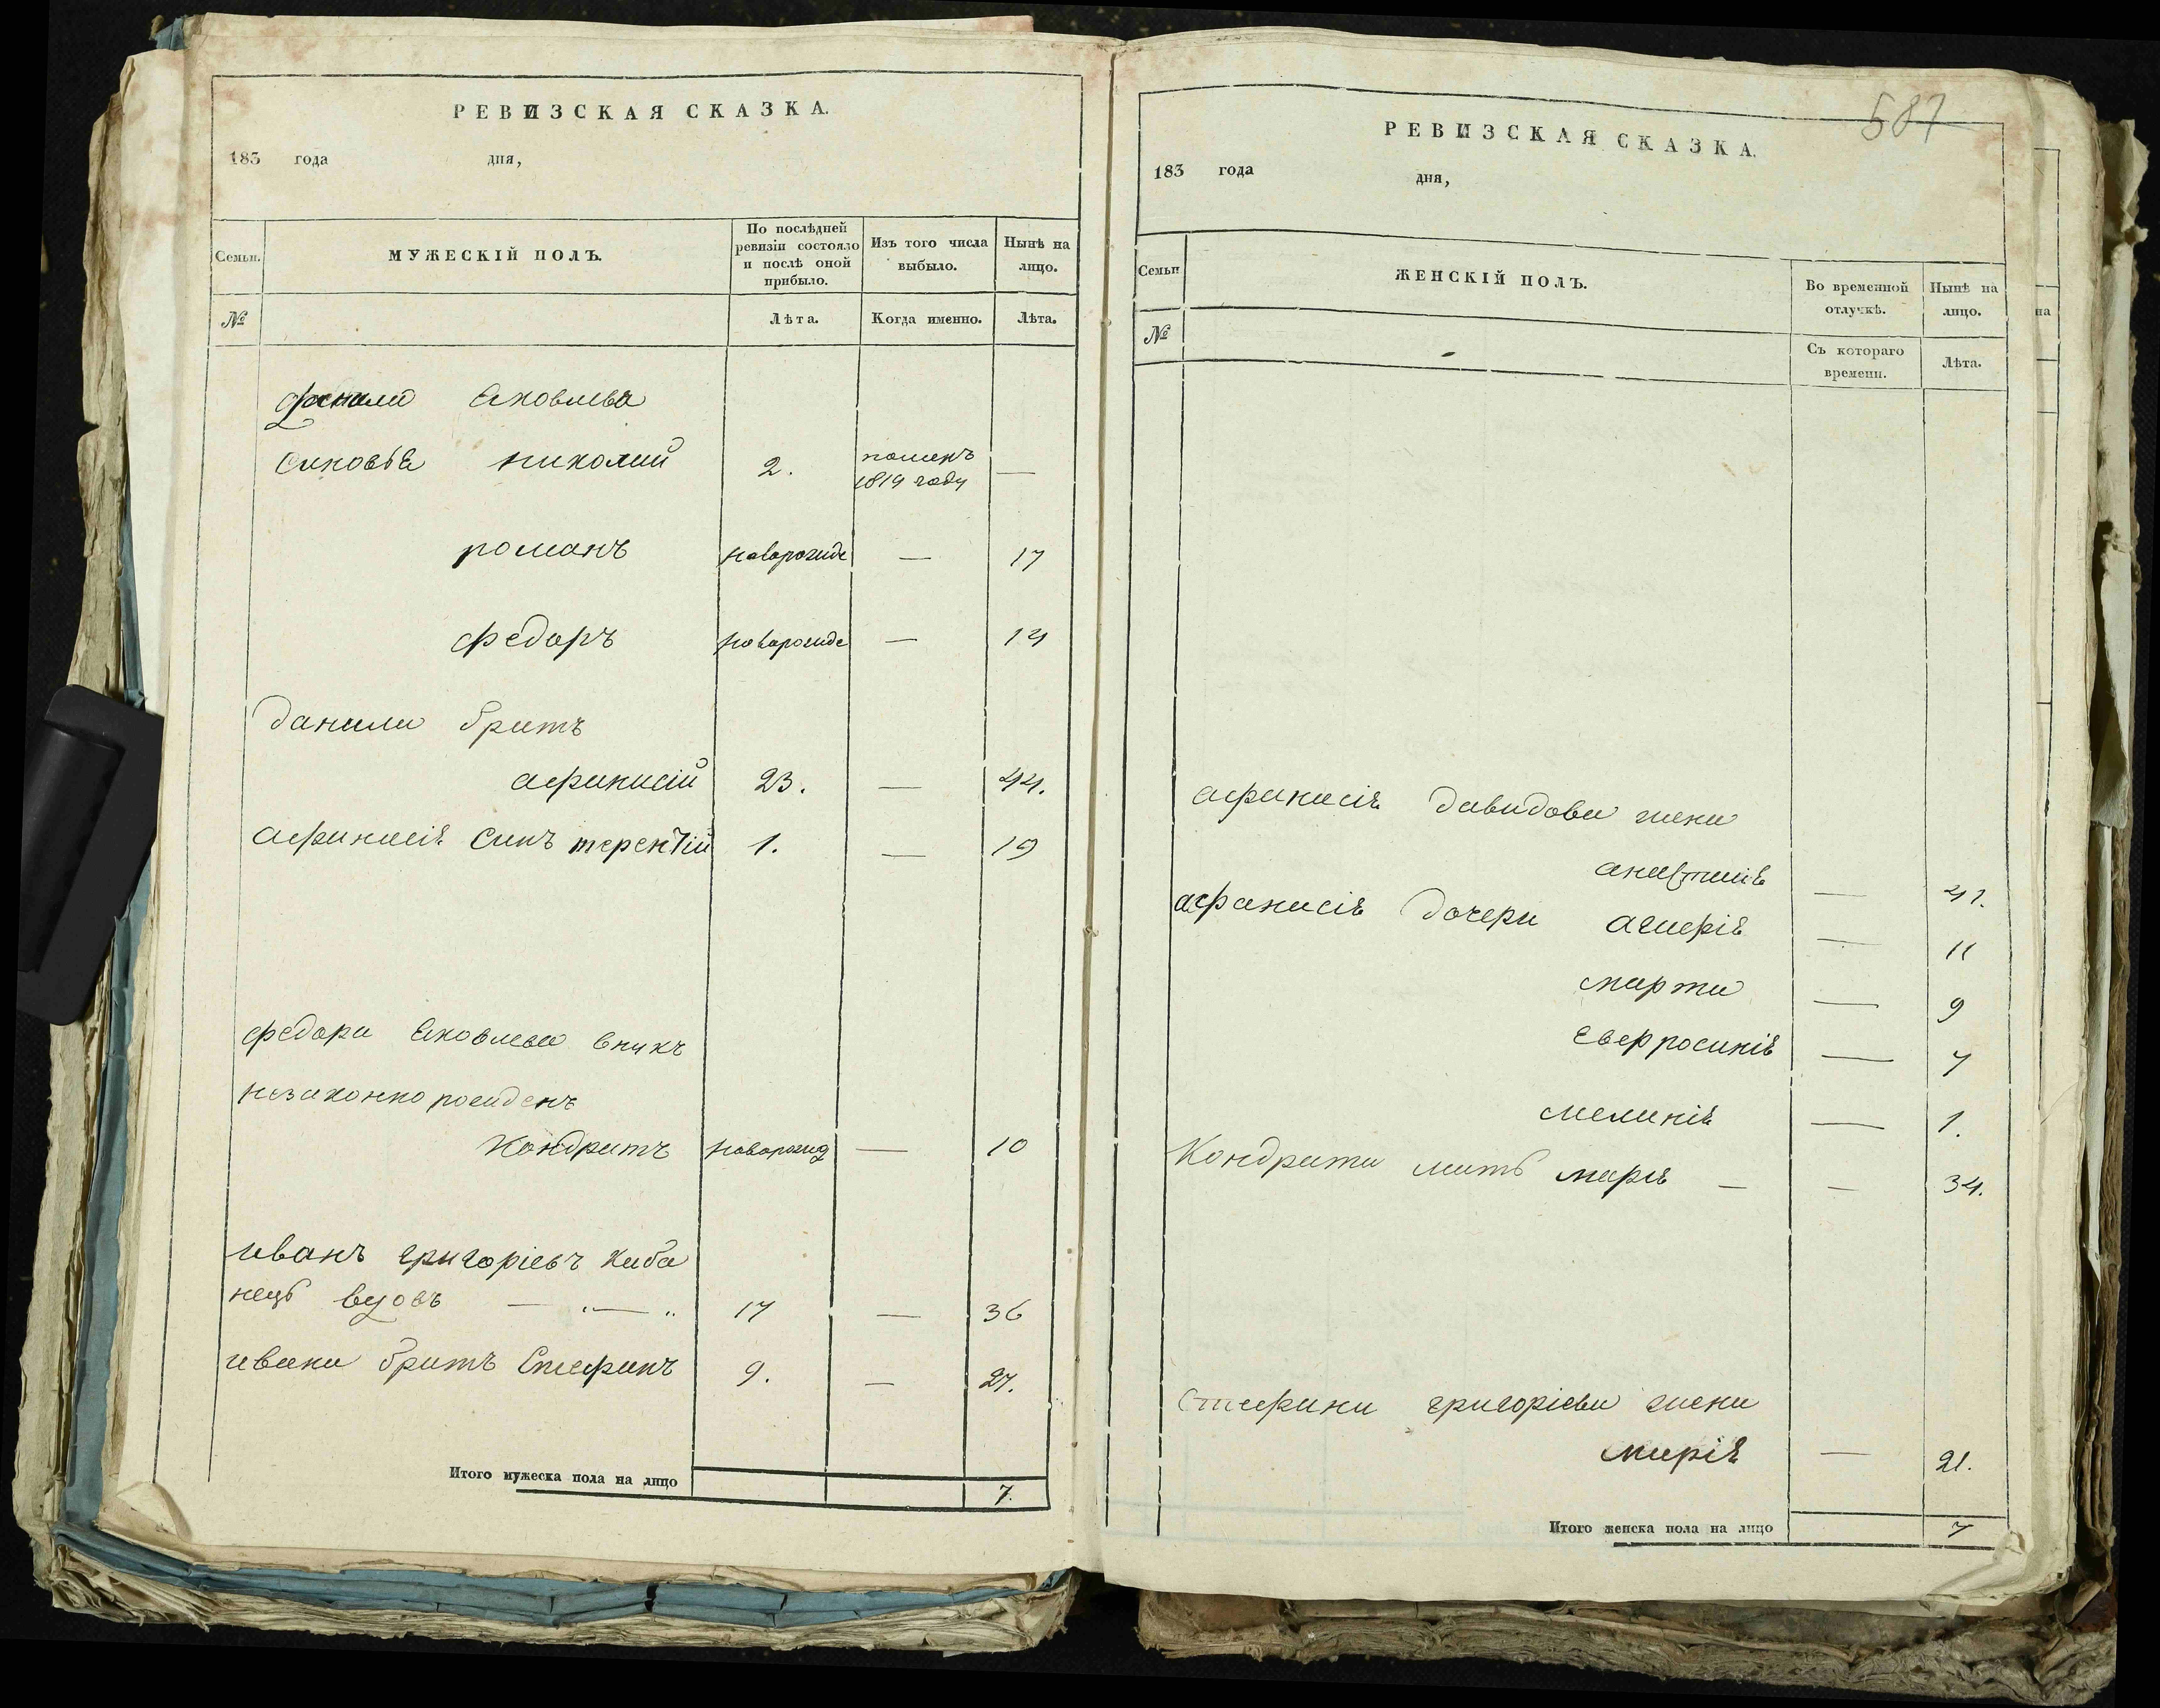 РЕВИЗСКАЯ СКАЗКА.
183 года дня,
Семьи.
МУЖЕСКІЙ ПОЛЪ.
По послѣдней ревизіи состояло и послѣ оной прибыло.
Изъ того числа выбыло.
Нынѣ на лицо.
№
Лѣта.
Когда именно.
Лѣта.
данила Яковлева
синовья николай 2. 1819 году —
романъ новорожде — 17
федоръ новорожде — 14
данили братъ
афанасій 23. — 44.
афанасія синъ терентій 1. — 19
федора Яковлева внукъ
незаконно рожденъ
Кондратъ новорожд — 10
иванъ григоріевъ каба
нецъ вдовъ — 17 — 36
ивана братъ Стефанъ 9. — 27.
Итого мужеска пола на лицо 7.
587
РЕВИЗСКАЯ СКАЗКА.
183 года дня,
Семьи
ЖЕНСКІЙ ПОЛЪ.
Во временной отлучкѣ.
Нынѣ на лицо.
№
Съ котораго времени.
Лѣта.
афанасія давидова жена
— 41.
афанасія дочери — 11
марта — 9
евфросинія — 7
меланія — 1.
Кондрата мать марія — — 34.
Стефана григоріева жена
марія — 21.
Итого женска пола на лицо 7